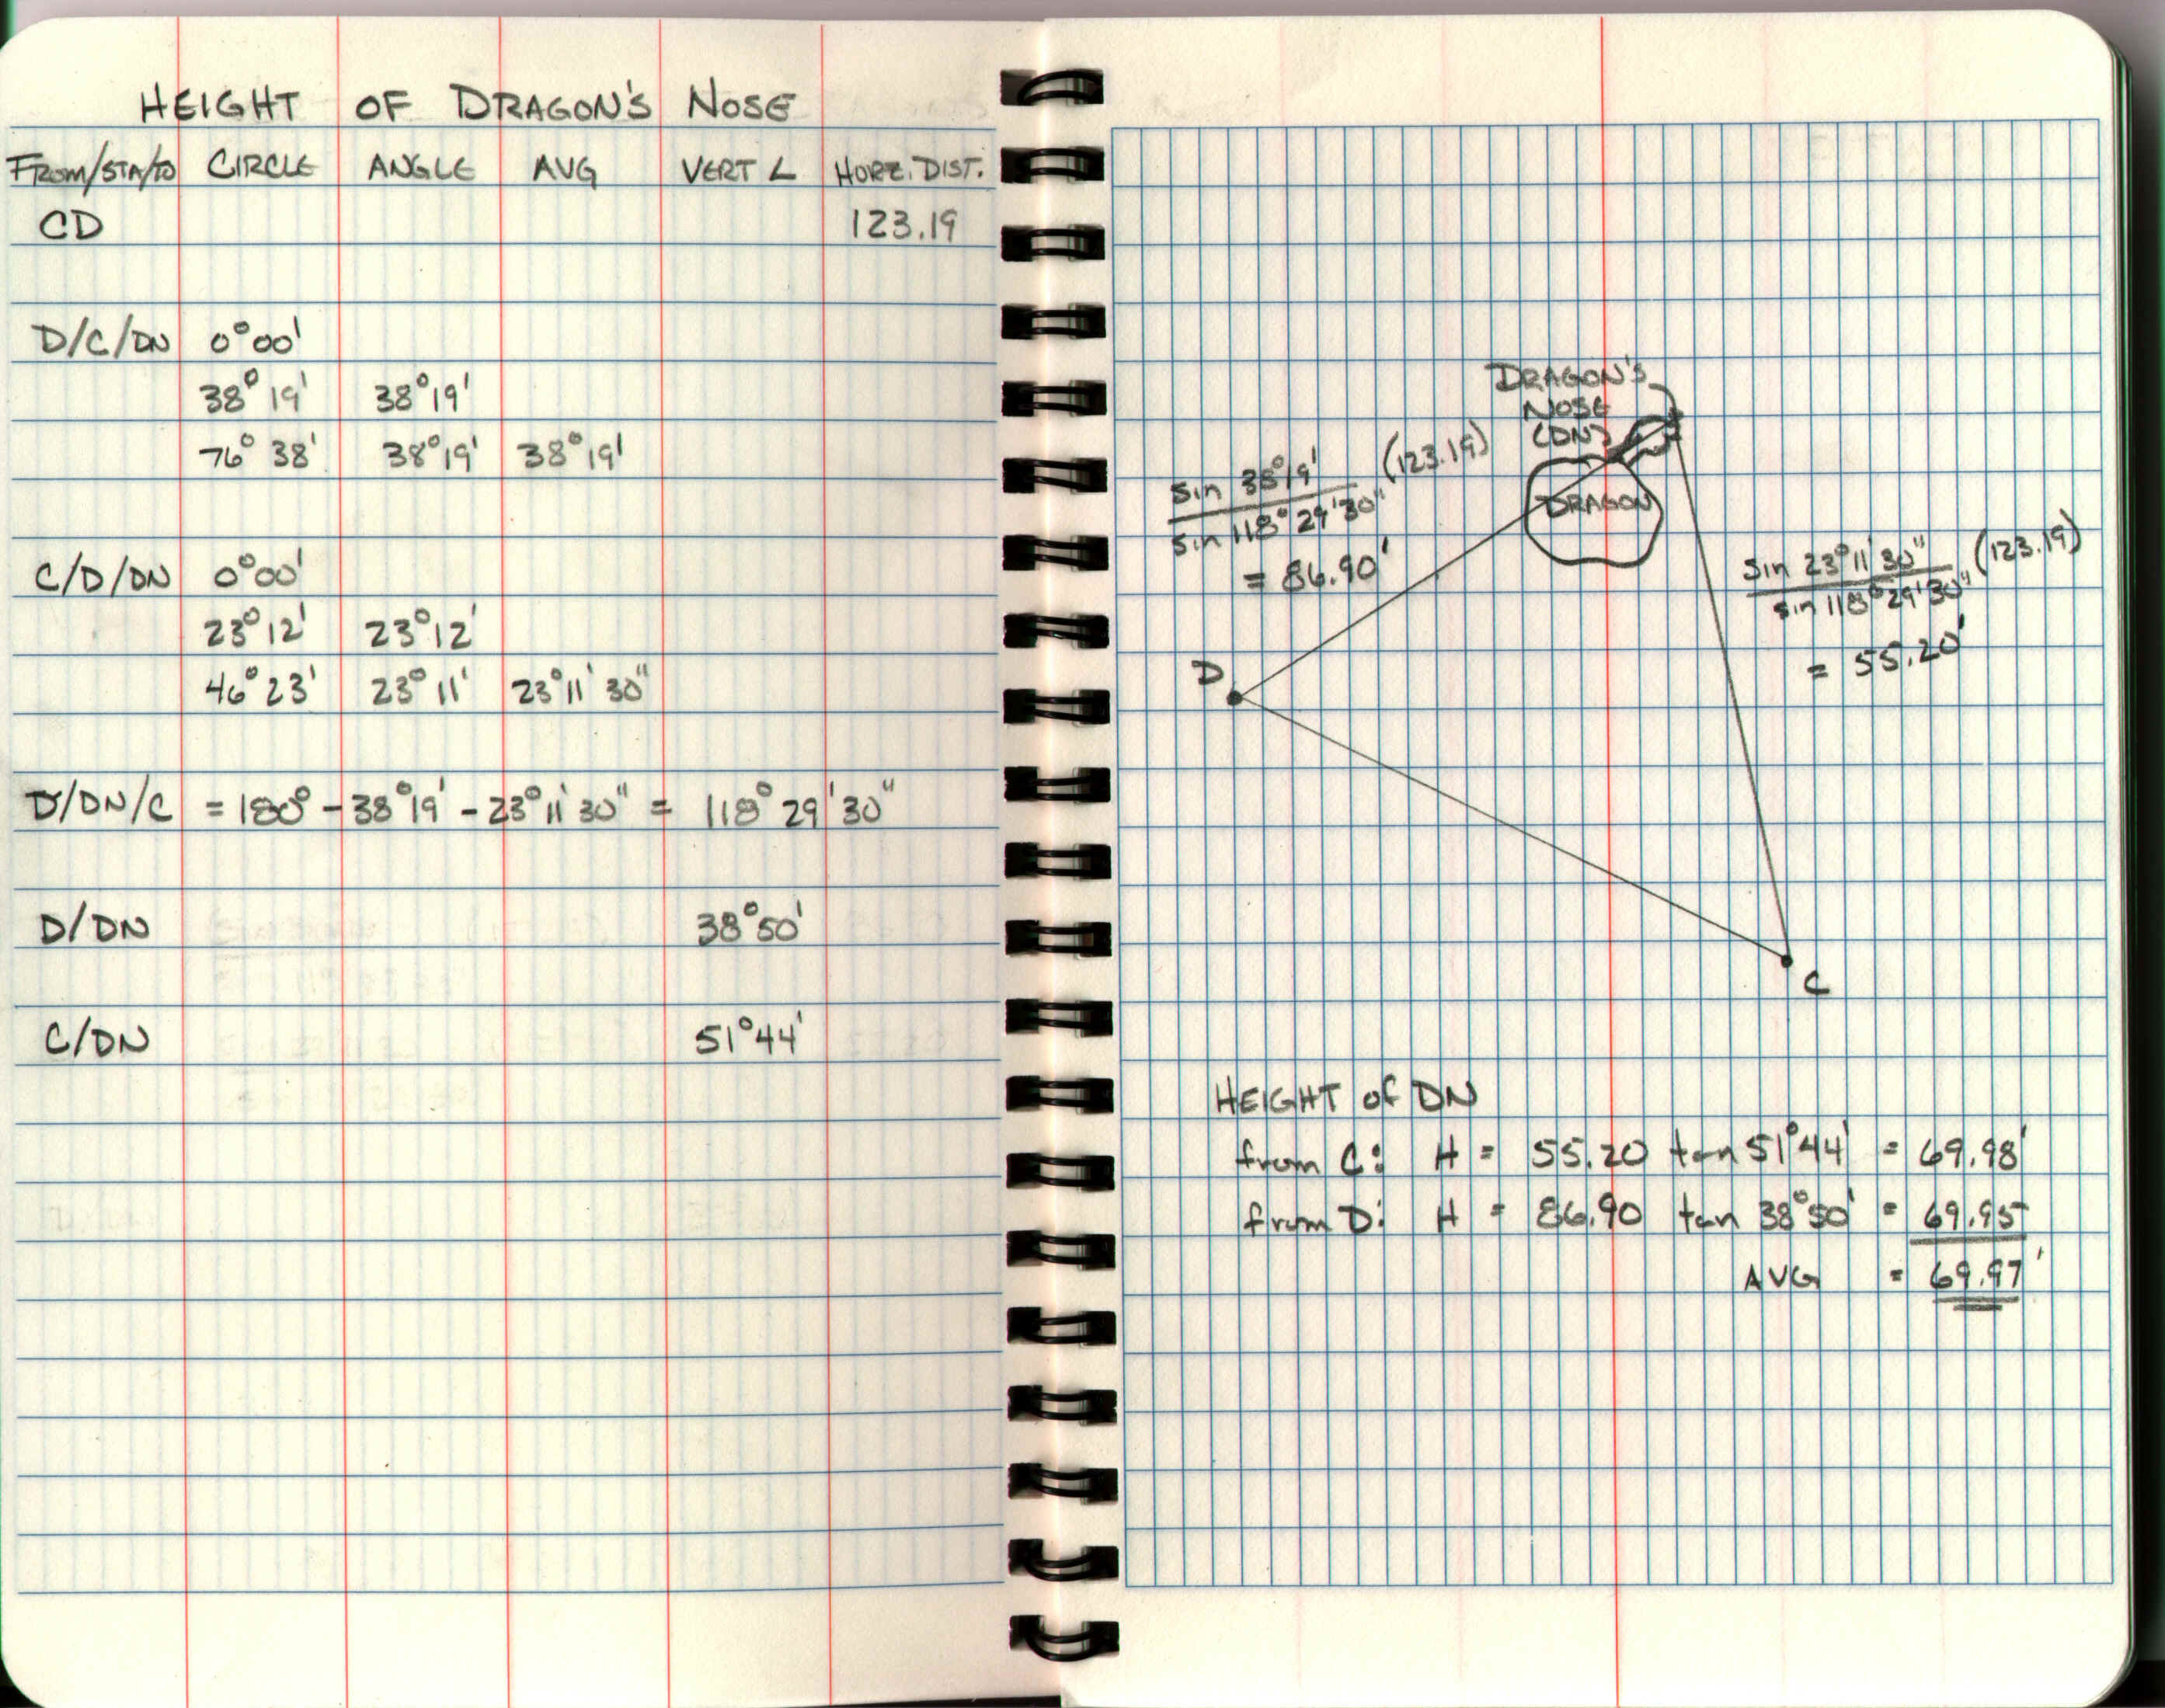 HEIGHT OF DRAGON'S NOSE
FROM/STA/TO CIRCLE ANGLE AVG VERT ∠ HORZ. DIST.
CD 123.19
D/C/DN 0°00'
38°19' 38°19'
76°38' 38°19' 38°19'
C/D/DN 0°00'
23°12' 23°12'
46°23' 23°11' 23°11'30"
D/DN/C = 180° - 38°19' - 23°11'30" = 118°29'30"
D/DN 38°50'
C/DN 51°44'
DRAGON'S
NOSE
(DN)
DRAGON
sin 38°19' (123.19)
sin 118°29'30"
= 86.90'
sin 23°11'30" (123.19)
sin 118°29'30"
= 55.20'
D
C
HEIGHT of DN
from C: H = 55.20 tan 51°44' = 69.98'
from D: H = 86.90 tan 38°50' = 69.95
AVG = 69.97'